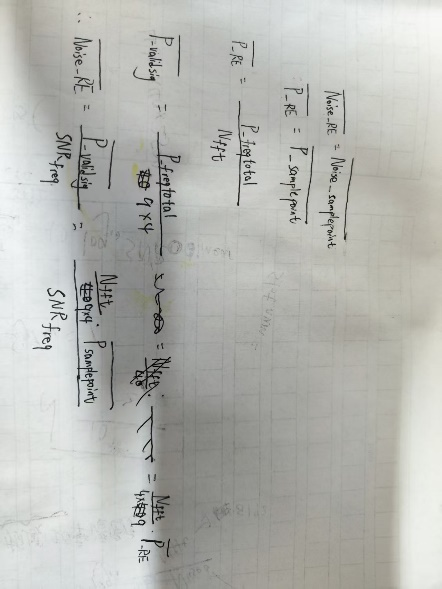 Noise_RE = Noise_samplepoint
∵ P_RE = P_samplepoint
P_RE = P_freqtotal / Nfft
P_validsig = P_freqtotal / 9×4 = Nfft / 4×9 · P_RE
∴ Noise_RE = P_validsig / SNRfreq = Nfft / 9×4 · Psamplepoint / SNRfreq